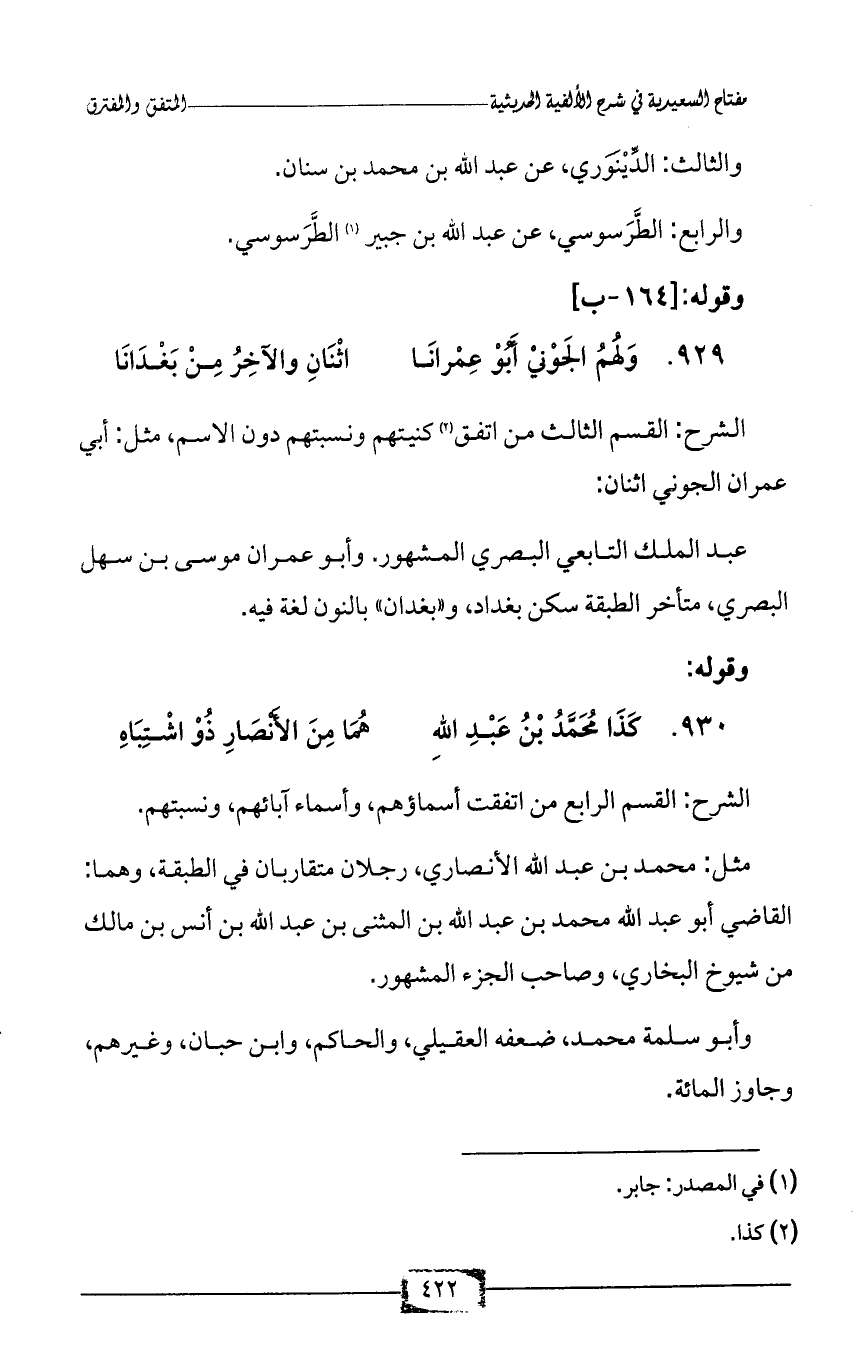 مفتاح السعيدية في شرح الألفية الحديثية ــــــــــــــــــــ المتفق والمفترق
والثالث: الدِّيْنَوَري، عن عبد الله بن محمد بن سنان.
والرابع: الطَّرَسوسي، عن عبد الله بن جبير (١) الطَّرَسوسي.
وقوله: [١٦٤-ب]
٩٢٩. وَلَهُمُ الجَوْنيْ أَبُوْ عِمْرانَـا اثْنَانِ والآخِرُ مِـنْ بَغْـدَانَا
الشرح: القسم الثالث من اتفق(٢) كنيتهم ونسبتهم دون الاسم، مثل: أبي
عمران الجوني اثنان:
عبد الملك التابعي البصري المشهور. وأبو عمران موسى بن سهل
البصري، متأخر الطبقة سكن بغداد، و«بغدان» بالنون لغة فيه.
وقوله:
٩٣٠. كَذَا مُحَمَّدُ بْنُ عَبْـدِ اللهِ هُمَا مِنَ الأَنْصَارِ ذُوْ اشْـتِبَاهِ
الشرح: القسم الرابع من اتفقت أسماؤهم، وأسماء آبائهم، ونسبتهم.
مثل: محمد بن عبد الله الأنصاري، رجلان متقاربان في الطبقة، وهما:
القاضي أبو عبد الله محمد بن عبد الله بن المثنى بن عبد الله بن أنس بن مالك
من شيوخ البخاري، وصاحب الجزء المشهور.
وأبو سلمة محمد، ضعفه العقيلي، والحاكم، وابن حبان، وغيرهم،
وجاوز المائة.
(١) في المصدر: جابر.
(٢) كذا.
٤٢٢